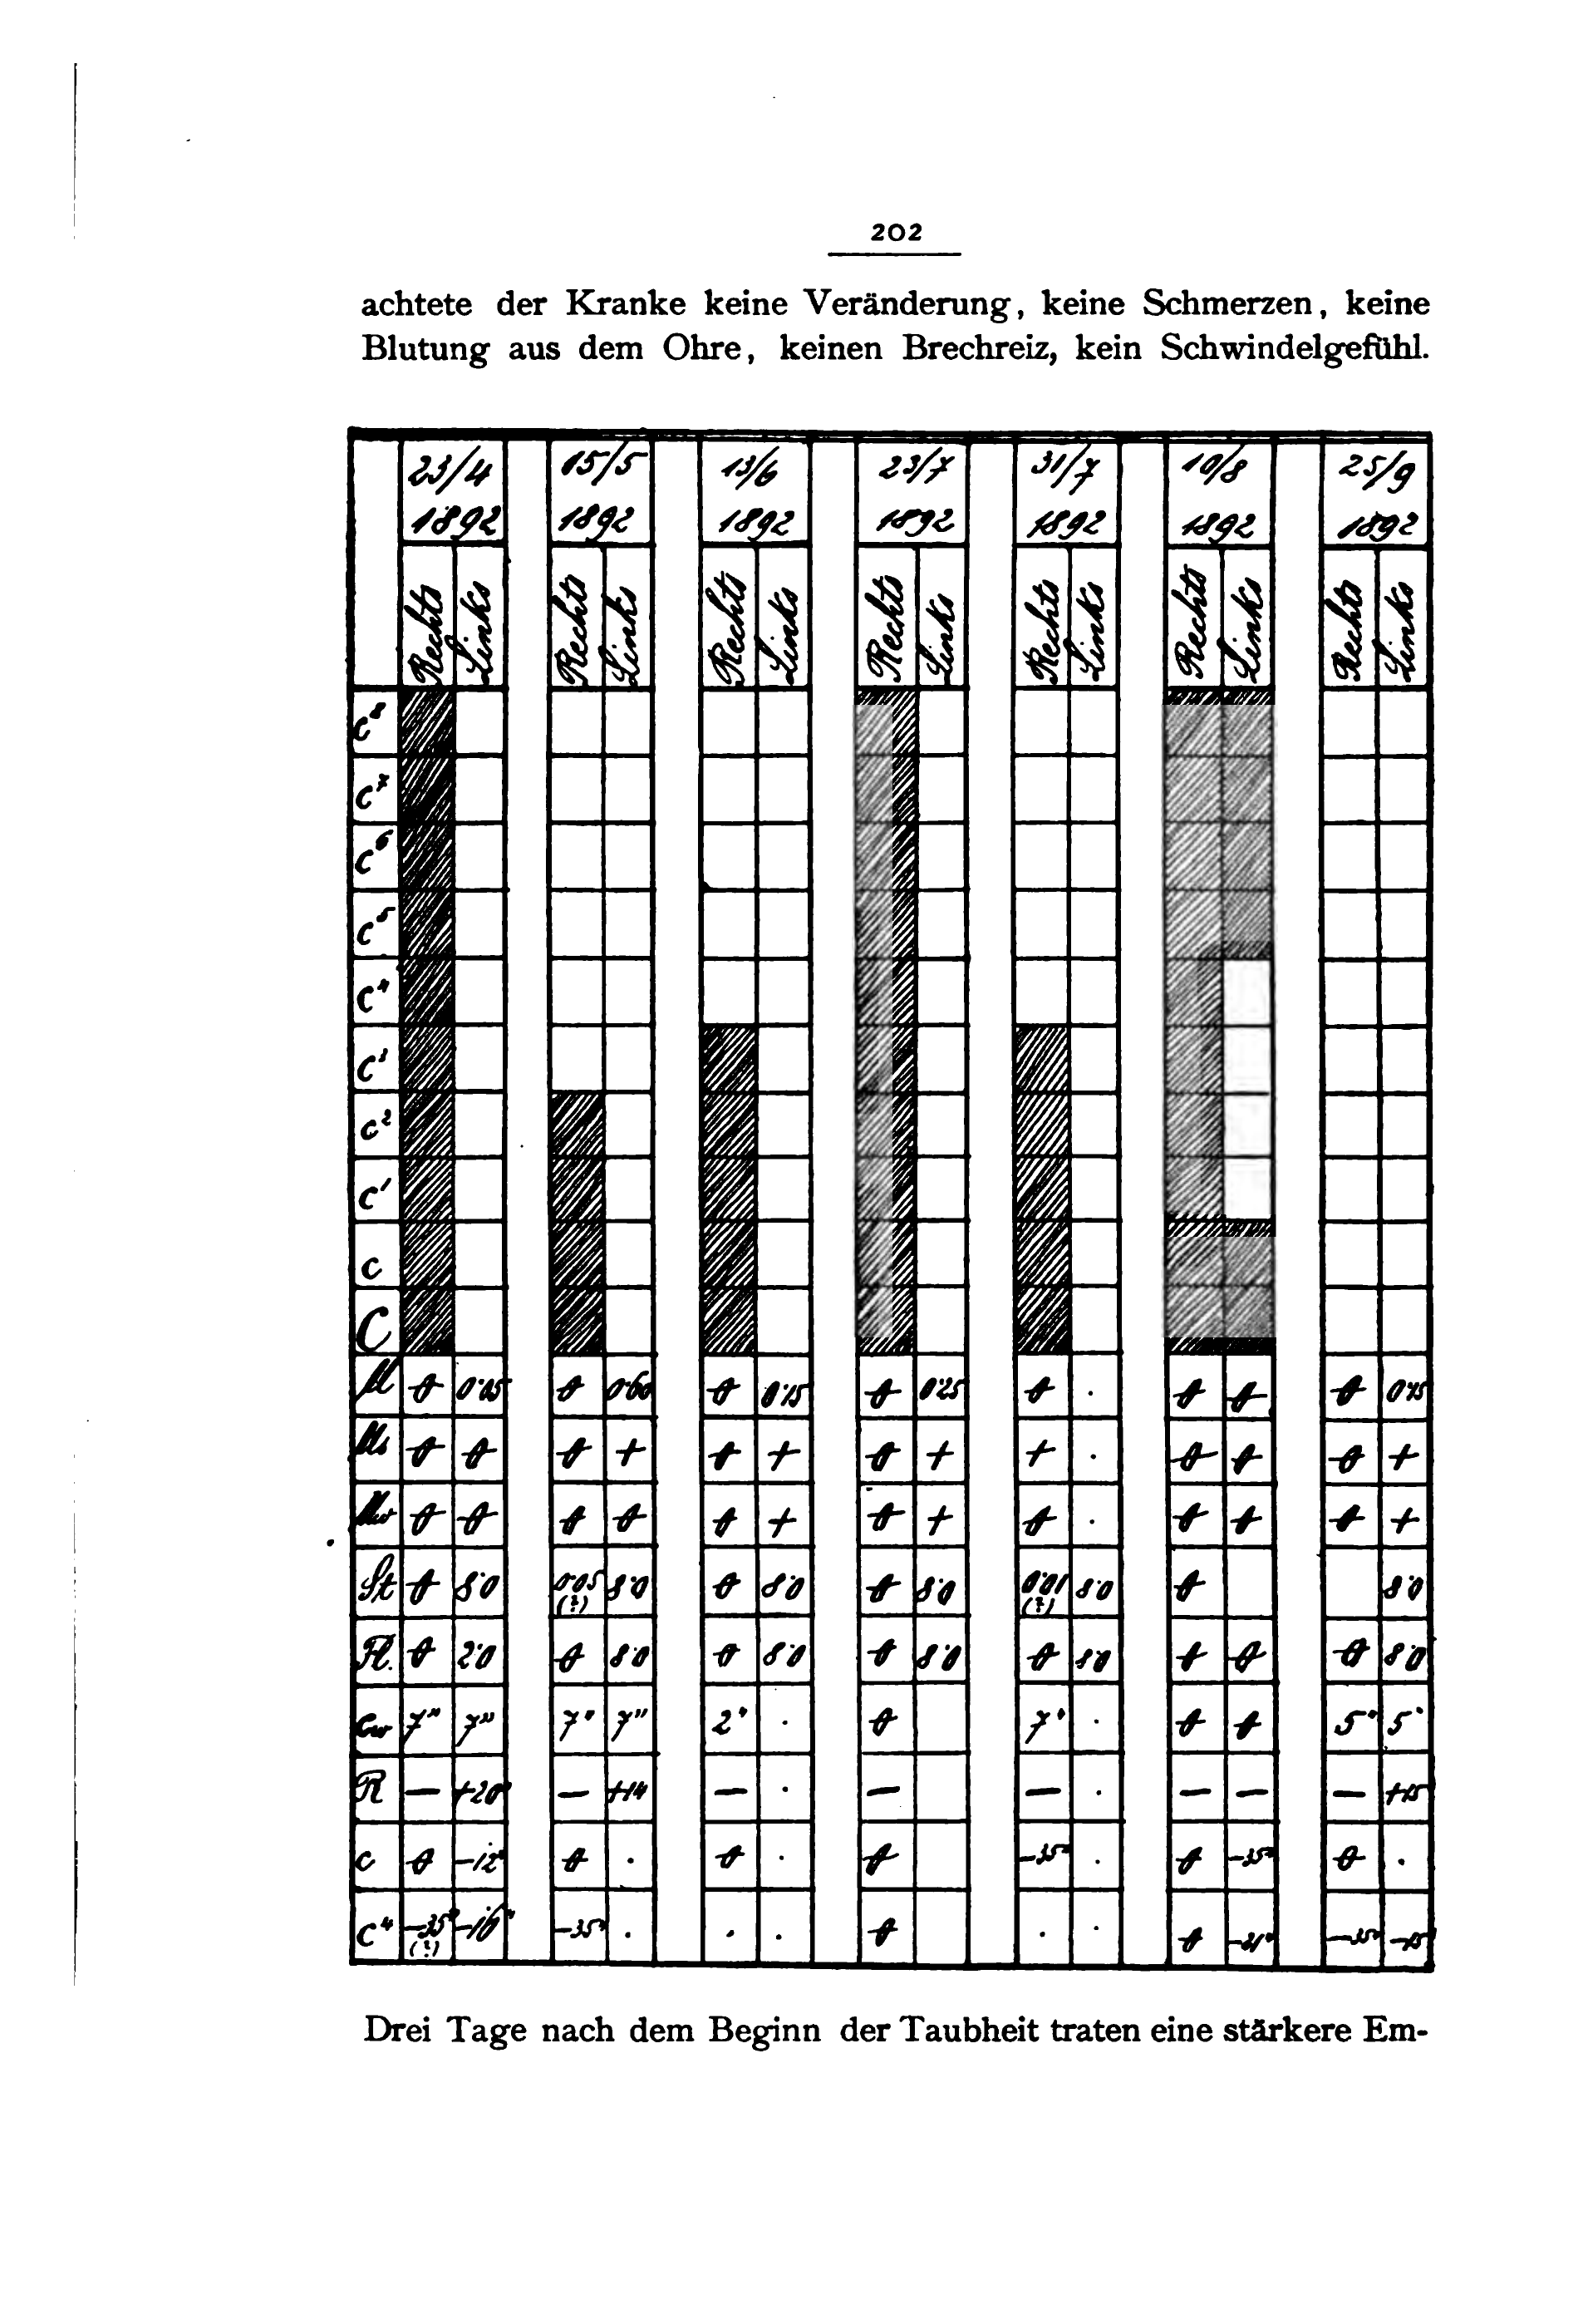 202
achtete der Kranke keine Veränderung, keine Schmerzen, keine
Blutung aus dem Ohre, keinen Brechreiz, kein Schwindelgefühl.
23/4 15/5 13/6 23/7 31/7 10/8 25/9
1892 1892 1892 1892 1892 1892 1892
Rechts Links Rechts Links Rechts Links Rechts Links Rechts Links Rechts Links Rechts Links
c⁸
c⁷
c⁶
c⁵
c⁴
c³
c²
c'
c
C
M 0 0·05 0 0·60 0 0·15 0 0·25 0 . 0 0 0
Ms 0 0 0 + 0 + 0 + + . 0 0 0 +
Mw 0 0 0 0 0 + 0 + 0 . 0 0 0 +
St 0 8·0 0·05 (?) 8·0 0 8·0 0 8·0 0·01 (?) 8·0 0 8·0
Fl. 0 2·0 0 8·0 0 8·0 0 8·0 0 8·0 0 0 0 8·0
Cw 7" 7" 7" 7" 2" . 0 7" . 0 0 5" 5"
R — +20" — +14 — . — — . — — — +15
c 0 –12" 0 . 0 . 0 –35" . 0 –35" 0 .
c⁴ –35" (?) –16" –35" . . . 0 . . 0 –35" –15
Drei Tage nach dem Beginn der Taubheit traten eine stärkere Em-